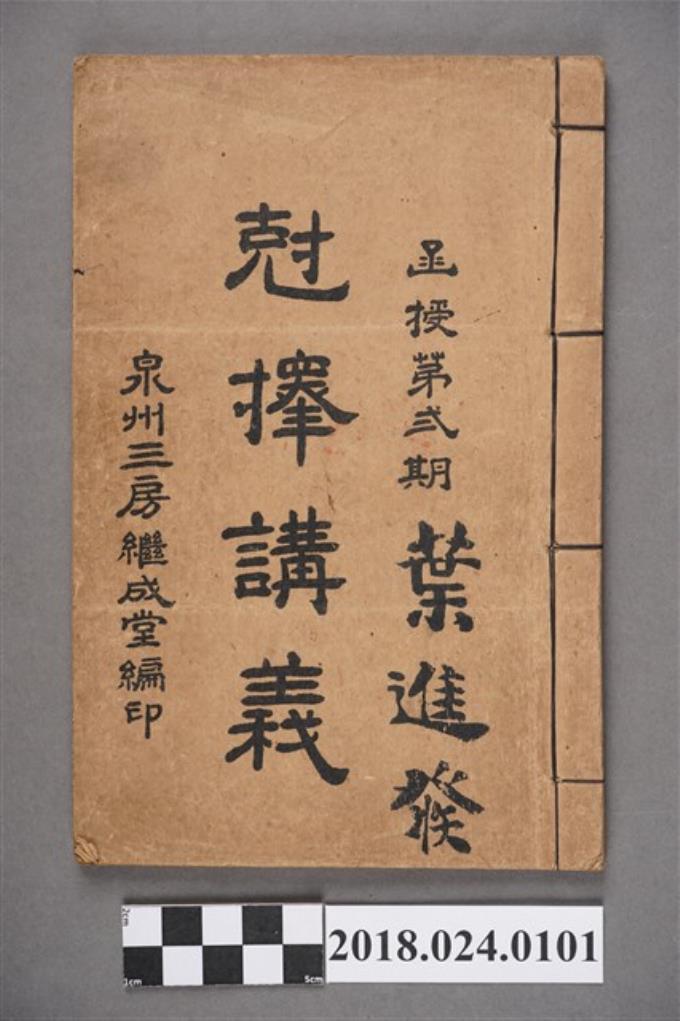 函授苐弍期 葉進發
尅擇講義
泉州三房繼成堂編印
2cm
1cm
5cm
2018.024.0101